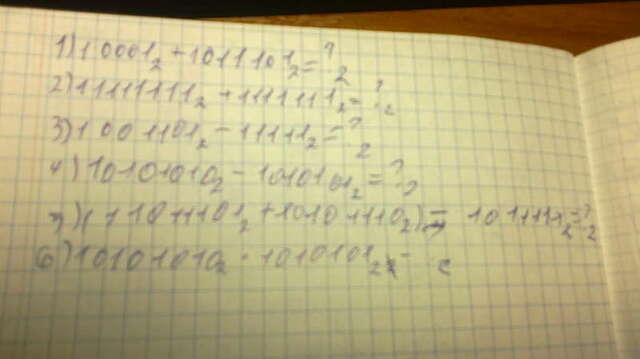 1) 10001₂ + 1011101₂ = ?₂
2) 11111111₂ + 1111111₂ = ?₂
3) 1001101₂ - 11111₂ = ?₂
4) 10101010₂ - 1010101₂ = ?₂
5) (11011101₂ + 10101110₂) - 101111₂ = ?₂
6) 10101010₂ · 1010101₂ = ₂